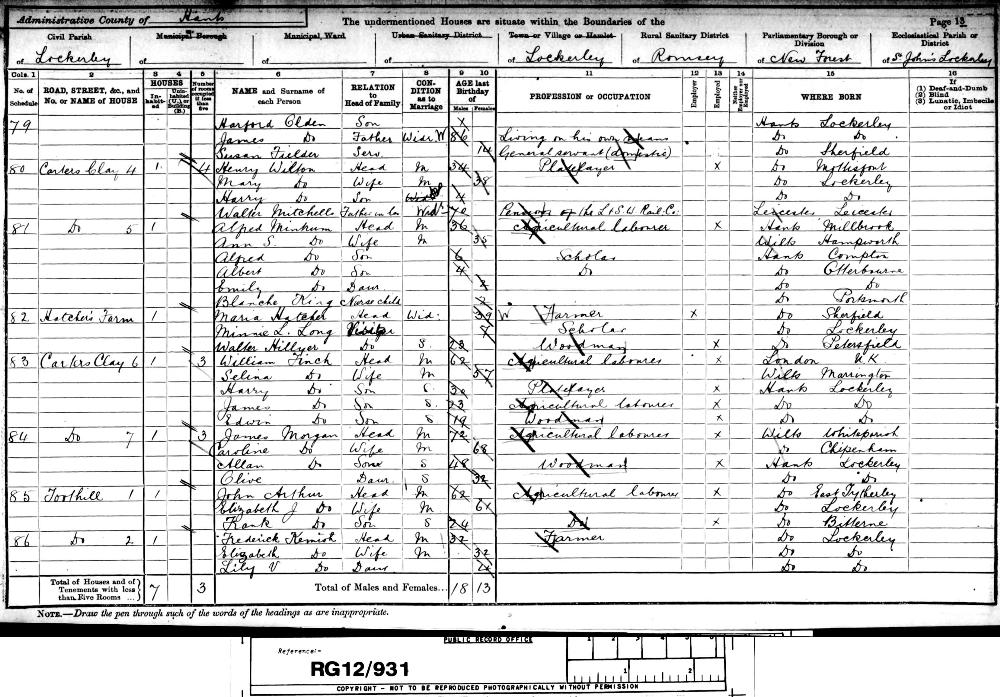 Administrative County of Hants
The undermentioned Houses are situate within the Boundaries of the
Page 13
Civil Parish
of Lockerley
Municipal Borough
of
Municipal Ward
of
Urban Sanitary District
of
Town or Village or Hamlet
of Lockerley
Rural Sanitary District
of Romsey
Parliamentary Borough or Division
of New Forest
Ecclesiastical Parish or District
of St John's Lockerley
Cols. 1 2 3 4 5 6 7 8 9 10 11 12 13 14 15 16
No. of Schedule
ROAD, STREET, &c., and No. or NAME of HOUSE
HOUSES
Inhabited
Uninhabited (U.), or Building (B.)
Number of rooms occupied if less than five
NAME and Surname of each Person
RELATION to Head of Family
CONDITION as to Marriage
AGE last Birthday of
Males Females
PROFESSION or OCCUPATION
Employer
Employed
Neither Employer nor Employed
WHERE BORN
If (1) Deaf-and-Dumb (2) Blind (3) Lunatic, Imbecile or Idiot
79 Harford Olden Son Hants Lockerley
James Do Father Widr W 86 Living on his own means Do Do
Susan Fielder Serv. 14 General servant (domestic) Do Sherfield
80 Carters Clay 4 1 4 Henry Wilton Head M 34 Platelayer x Do Mottisfont
Mary Do Wife M 38 Do Lockerley
Harry Do Son 4 Do Do
Walter Mitchells Father in law Widr 70 Pension of the L & S W Rail. Co. Leicester Leicester
81 Do 5 1 Alfred Minkum Head M 36 Agricultural labourer x Hants Millbrook
Ann S. Do Wife M 35 Wilts Hampworth
Alfred Do Son 6 Scholar Hants Compton
Albert Do Son 4 Do Do Otterbourne
Emily Do Daur Do Do
Blanche King Nurse child Do Portsmouth
82 Hatcher's Farm 1 Maria Hatcher Head Wid. 39 W Farmer x Do Sherfield
Minnie L. Long Visitor 7 Scholar Do Lockerley
Walter Hillyer Do S. 23 Woodman x Do Petersfield
83 Carters Clay 6 1 3 William Finch Head M 62 Agricultural labourer x London U.K.
Selina Do Wife M 57 Wilts Marrington
Harry Do Son S. 30 Platelayer x Hants Lockerley
James Do Son S. 23 Agricultural labourer x Do Do
Edwin Do Son S 19 Woodman x Do Do
84 Do 7 1 3 James Morgan Head M 72 Agricultural labourer x Wilts Whiteparish
Caroline Do Wife M 68 Do Chipenham
Allan Do Son S 48 Woodman x Hants Lockerley
Olive Daur S 32 Do Do
85 Toothill 1 1 John Arthur Head M 62 Agricultural labourer x Do East Tytherley
Elizabeth J Do Wife M 61 Do Lockerley
Frank Do Son S 24 Do x Do Bitterne
86 Do 2 1 Frederick Kemish Head M 32 Farmer Do Lockerley
Elizabeth Do Wife M 32 Do Do
Lily V Do Daur 4 Do Do
Total of Houses and of Tenements with less than Five Rooms ... 7 3
Total of Males and Females... 18 13
NOTE.—Draw the pen through such of the words of the headings as are inappropriate.
PUBLIC RECORD OFFICE
Reference:-
RG12/931
1 2 3 4 5 6
1 2
COPYRIGHT - NOT TO BE REPRODUCED PHOTOGRAPHICALLY WITHOUT PERMISSION